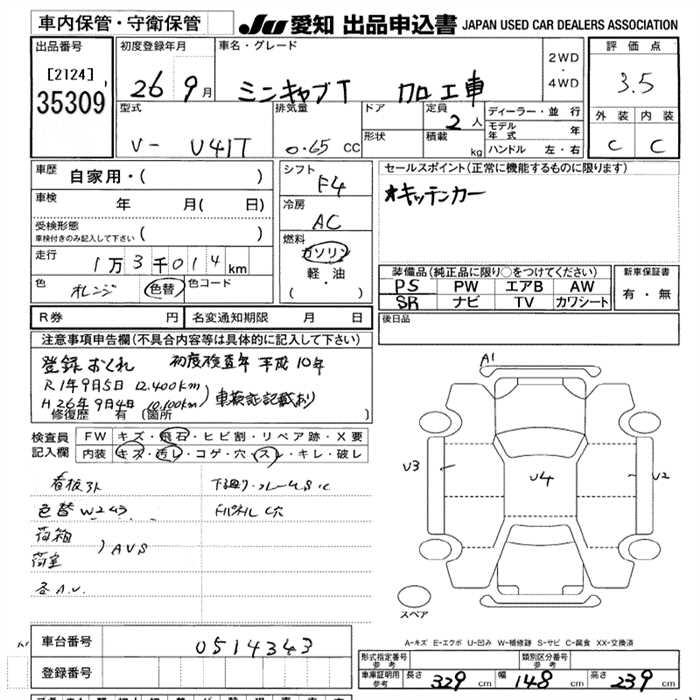 車内保管・守衛保管
JU 愛知 出品申込書 JAPAN USED CAR DEALERS ASSOCIATION
出品番号
[2124]
35309
初度登録年月
26 9月
車名・グレード
ミニキャブT 加工車
2WD
・
4WD
評価点
3.5
外装 内装
C C
型式
V- U41T
排気量
0.65 CC
ドア
形状
定員
2人
積載
kg
ディーラー・並行
モデル年式 年
ハンドル 左・右
車歴
自家用・( )
車検
年 月( 日)
受検形態
車検付きのみ記入して下さい ( )
走行
1万3千014km
色 オレンジ 色替 色コード
シフト
F4
冷房
AC
燃料
ガソリン
軽・油
( )
セールスポイント(正常に機能するものに限ります)
*キッチンカー
装備品(純正品に限り○をつけてください)
PS PW エアB AW
SR ナビ TV カワシート
新車保証書
有・無
R券 円 名変通知期限 月 日
後日品
注意事項申告欄(不具合内容等は具体的に記入して下さい)
登録おくれ 初度検査年 平成10年
R1年9月5日 12,400km
H26年9月4日 10,100km ) 車検証記載あり
修復歴 有 (箇所 )
検査員記入欄
FW キズ・飛石・ヒビ割・リペア跡・X要
内装 キズ・汚レ・コゲ・穴・スレ・キレ・破レ
看板跡
色替 W243
荷箱
荷室
) AUS
各A.U.
下廻り・フレームS.C
ドルパネルC穴
A1
U3
U4
U2
スペア
A-キズ E-エクボ U-凹み W-補修跡 S-サビ C-腐食 XX-交換済
車台番号 0514343
登録番号
形式指定番号 参考
類別区分番号 参考
車庫証明用 参考
長さ 329 cm 幅 148 cm 高さ 239 cm